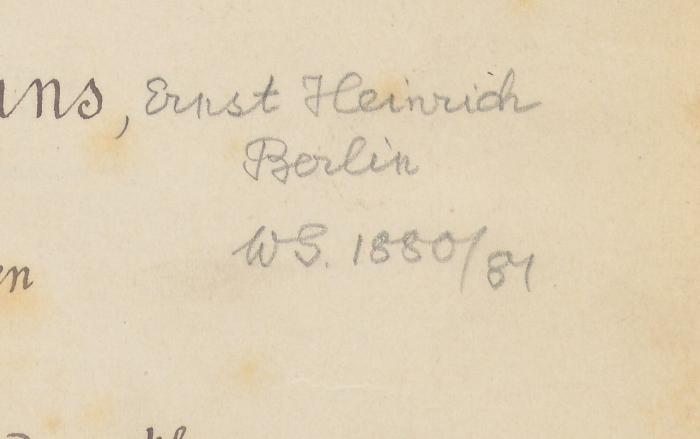 , Ernst Heinrich
Berlin
WS. 1880/81